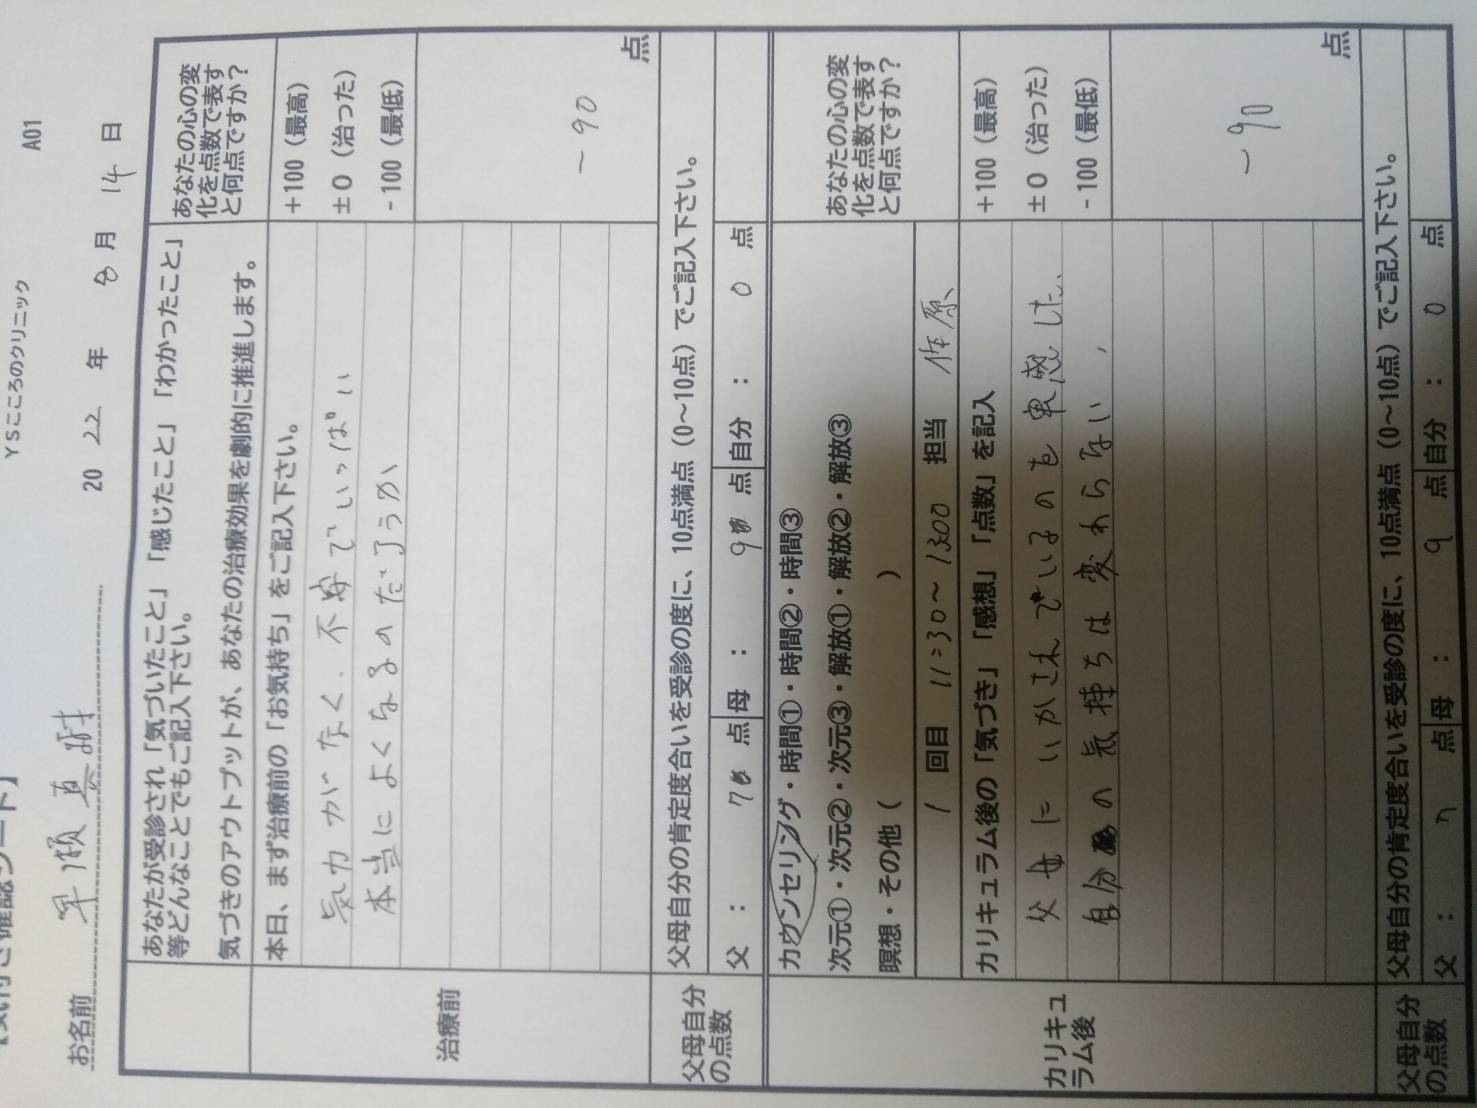 YSこころのクリニック A01
お名前 早瀬真
2022年 8月 14日
あなたが受診され「気づいたこと」「感じたこと」「わかったこと」
等どんなことでもご記入下さい。
気づきのアウトプットが、あなたの治療効果を劇的に推進します。
あなたの心の変
化を点数で表す
と何点ですか？
治療前
本日、まず治療前の「お気持ち」をご記入下さい。
気力がなく、不安でいっぱい
本当によくなるのだろうか
+100（最高）
±0（治った）
-100（最低）
-90
点
父母自分
の点数
父母自分の肯定度合いを受診の度に、10点満点（0〜10点）でご記入下さい。
父： 7 点 母： 9 点 自分： 0 点
カリキュ
ラム後
カウンセリング・時間①・時間②・時間③
次元①・次元②・次元③・解放①・解放②・解放③
瞑想・その他（ ）
1 回目 11:30〜1300 担当 作原
あなたの心の変
化を点数で表す
と何点ですか？
カリキュラム後の「気づき」「感想」「点数」を記入
父母にいかされているのも実感した、
自分の気持ちは変わらない
+100（最高）
±0（治った）
-100（最低）
-90
点
父母自分
の点数
父母自分の肯定度合いを受診の度に、10点満点（0〜10点）でご記入下さい。
父： 7 点 母： 9 点 自分： 0 点